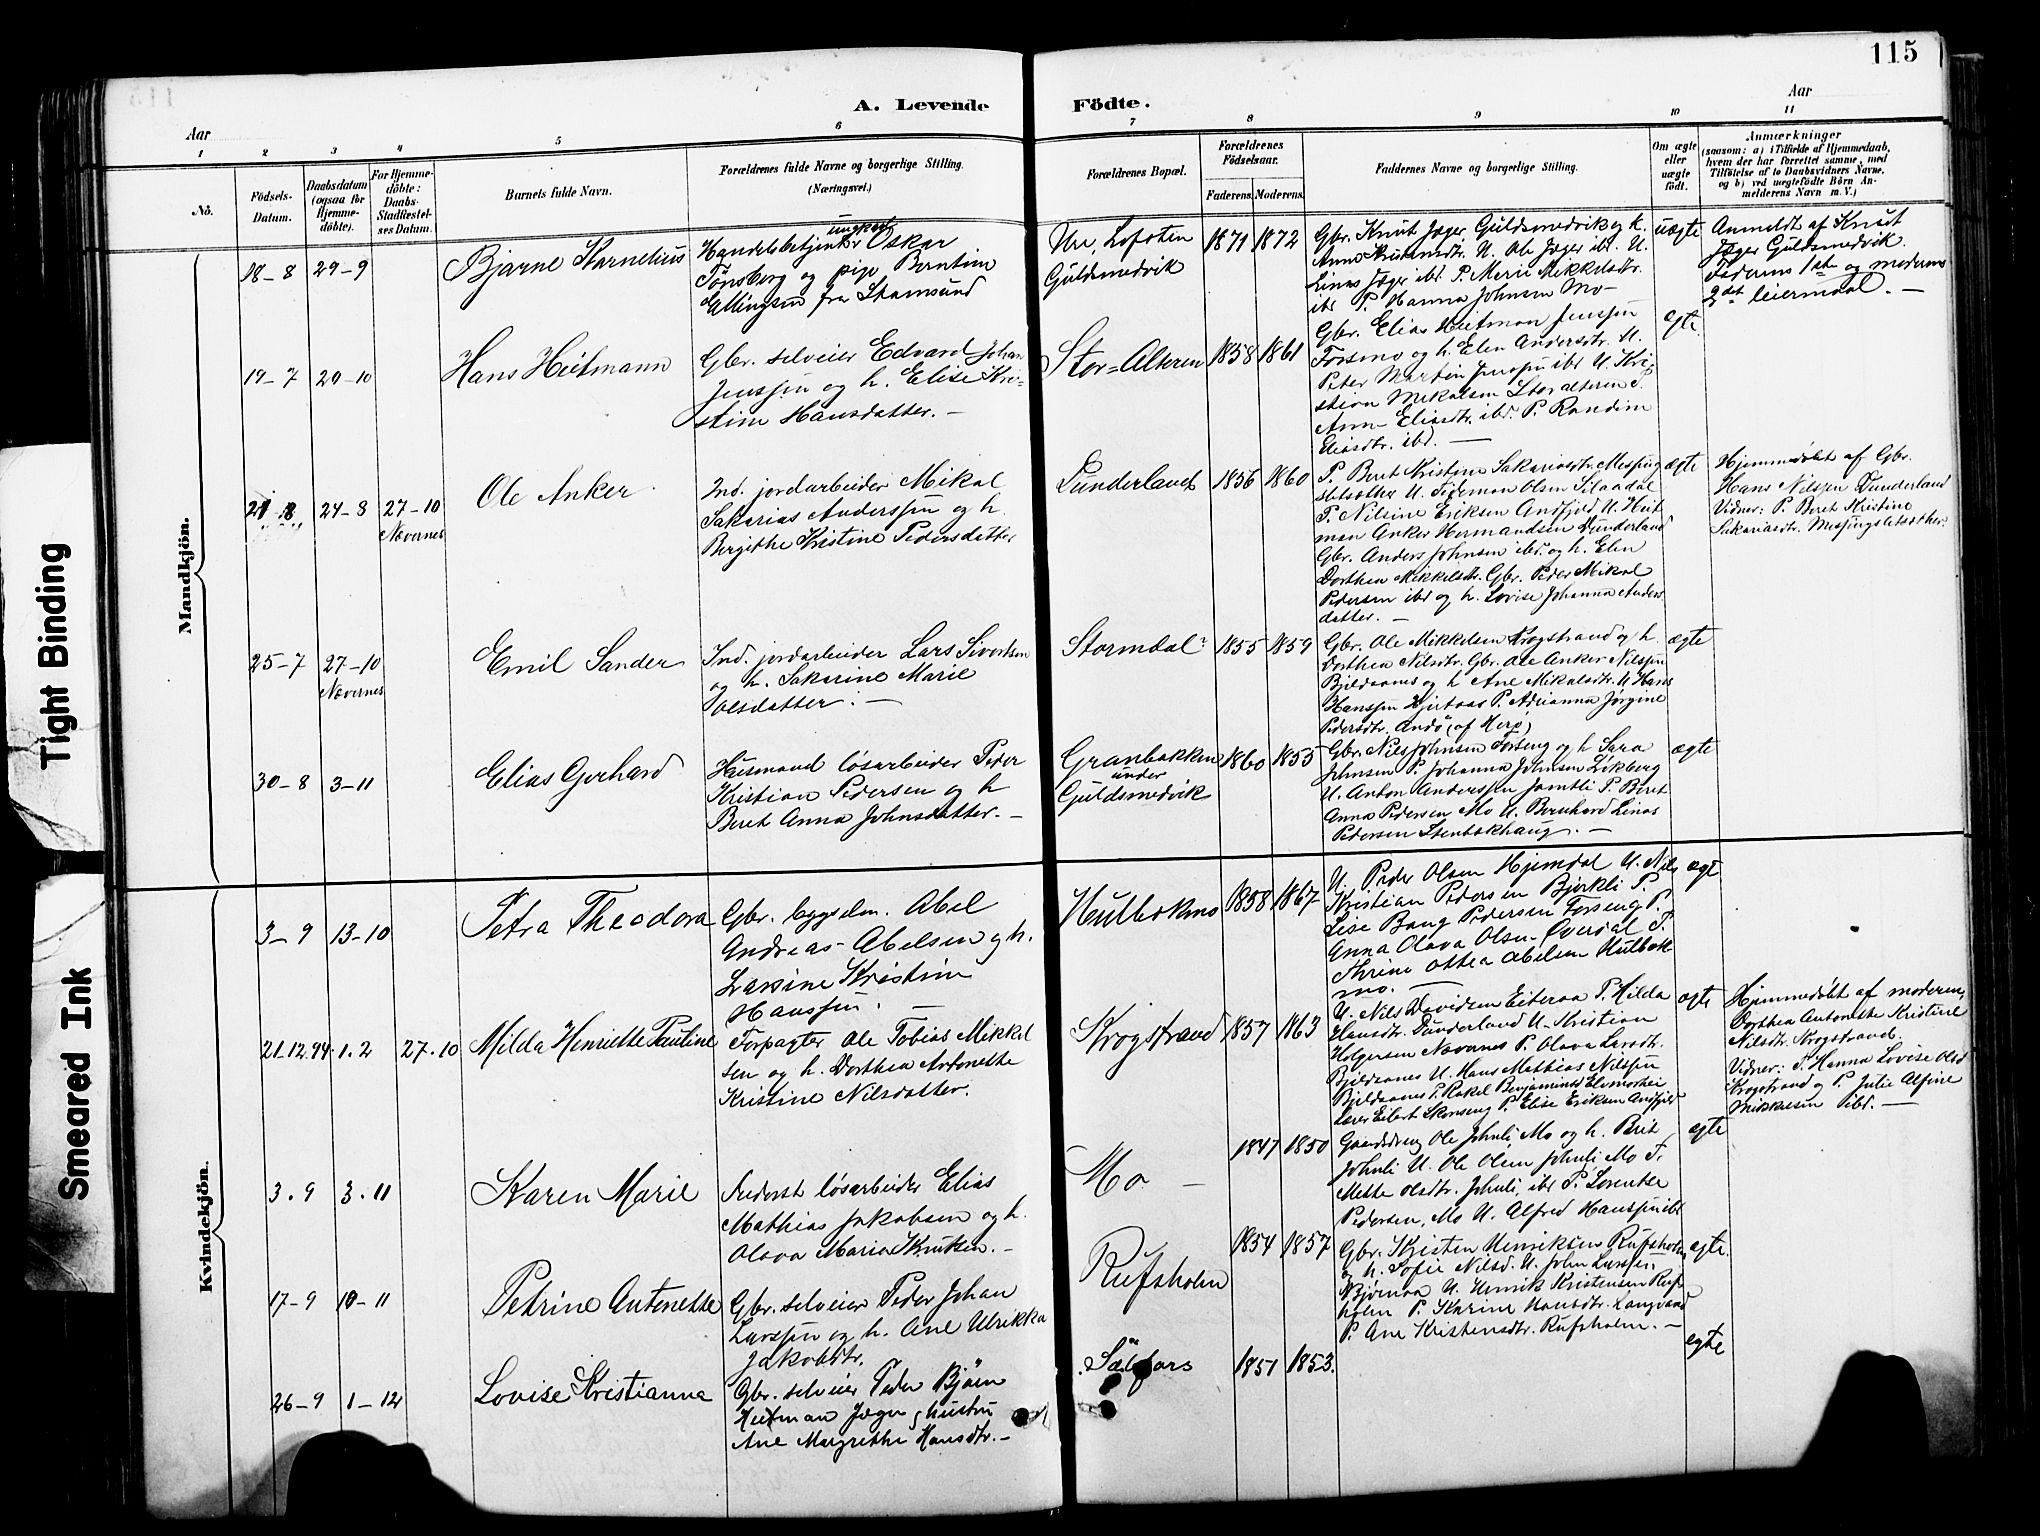 115
A. Levende Födte.
Aar
Aar
1 2 3 4 5 6 7 8 9 10 11
No.
Födsels-Datum.
Daabsdatum (ogsaa for Hjemmedöbte).
For Hjemmedöbte: Daabs-Stadfestelses Datum.
Barnets fulde Navn.
Forældrenes fulde Navne og borgerlige Stilling.
(Næringsvei.)
Forældrenes Bopæl.
Forældrenes Födselsaar.
Faderens. Moderens.
Faddernes Navne og borgerlige Stilling.
Om ægte eller uægte födt.
Anmærkninger
(saasom: a) i Tilfælde af Hjemmedaab,
hvem der har forrettet samme, med
Tilföielse af to Daabsvidners Navne.
og b) ved uægtefödte Börn An-
melderens Navn m. V.)
Mandkjön.
18-8
29-9
Bjarne Kornelius
ungkarl
Handelsbetjent Oskar
Tønsberg og pige Berntine
Ellingsen fra Stamsund
Ure, Lofoten
Guldsmedvik
1871 1872
Gbr. Knut Jæger Guldsmedvik og h.
Anne Kristensdtr. U. Ole Jæger ibd. U.
Linas Jæger ibd P. Merie Mikkelsdtr.
ibd P. Hanna Johnsen Mo -
uægte
Anmeldt af Knut
Jæger Guldsmedvik.
Faderens 1ste og moderens
2det leiermaal. -
19-7
20-10
Hans Heitmann
Gbr. selveier Edvard Johan
Jenssen og h. Elise Kri-
stine Hansdatter. -
Stor-Alteren
1858 1861
Gbr. Elias Heitman Jenssen
Forsmo og h. Elen Andersdtr. U.
Peter Martin Jenssen ibd U. Kri-
stian Mikalsen Storalteren P.
Ann- Eliasdtr. ibd. P. Randine
Eliasdtr. ibd. -
ægte
24-8
27-10
Nævernes
Ole Anker
Ind. jordarbeider Mikal
Sakarias Anderssen og h.
Bergithe Kristine Pedersdatter
Dunderland
1856 1860
P. Beret Kristine Sakariasdtr. Messing
sletsother U. Tideman Olsen Silaadal
P. Nilsine Eriksen Andfjeld U. Heit
man Anker Hermandsen Dunderland
Gbr. Anders Johnsen ibd. og h. Elen
Dorthea Mikkelsdtr. Gbr. Peder Mikal
Pedersen ibd og h. Lovise Johanna Anders
datter. -
ægte
Hjemmedøbt af Gbr.
Hans Nilssen Dunderland
Vidner: P. Beret Kristine
Sakariasdtr. Messingsletsother.
25-7
27-10
Nævernes
Emil Sander
Ind. jordarbeider Lars Sivertsen
og h. Sakarine Marie
Olsdatter. -
Stormdal
1855 1859
Gbr. Ole Mikkelsen Krogstrand og h.
Dorthea Nilsdtr. Gbr. Ole Anker Nilssen
Bjeldaanes og h Ane Mikalsdtr. U Hans
Hanssen Hjertaas P. Adrianna Jørgine
Pedersdtr. Andö (af Herø)
ægte
30-8
3-11
Elias Gerhard
Husmand løsarbeider Peder
Kristian Pedersen og h
Beret Anna Johnsdatter. -
Granbakken
under
Guldsmedvik
1860 1855
Gbr. Nils Johnsen Forseng og h Sara
Johnsen P. Johanna Johnsen Likberg
U. Anton Anderssen Jamtli P. Beret
Anna Pedersen Mo U. Bernhard Linas
Pedersen Stenbækhaug. -
ægte
Kvindekjön.
3-9
13-10
Petra Theodora
Gbr. bygselm. Abel
Andreas Abelsen og h.
Larsine Kristine
Hanssen.
Hulbækmo
1858 1867
U. Peder Olsen Hjemdal U. Nils
Kristian Pedersen Bjerkli P.
Lise Bang Pedersen Forseng P.
Anna Olava Olsen Överdal P.
Thrine Ottea Abelsen Hulbæk
mo. -
ægt
21.12.94
1.2
27.10
Milda Henriette Pauline
Forpagter Ole Tobias Mikkel
sen og h. Dorthea Antonette
Kristine Nilsdatter.
Krogstrand
1857 1863
U. Nils Davidsen Eiteraa P. Hilda
Hansdtr. Dunderland U. Kristian
Holgersen Nævernes P. Olava Larsdtr.
Bjeldaanes U. Hans Mathias Nilssen
Bjeldaanes P. Rakel Benjaminsd Elvmorhei
Lærer Eibert Skonseng P. Elise Eriksen Andfjeld
ægte
Hjemmedøbt af moderen,
Dorthea Antonette Kristine
Nilsdtr. Krogstrand.
Vidner: P. Hanna Lovise Olsd
Krogstrand og P. Julie Alfine
Mikkelsen ibd. -
3.9
3.11
Karen Marie
Inderst løsarbeider Elias
Mathias Jakobsen og h.
Olava Maria Knutsen. -
Mo -
1847 1850
Gaardsdreng Ole Johnli, Mo og h. Brit
Johnli U. Ole Olsen Johnli Mo P.
Mette Olsdtr. Johnli, ibd P. Lorentse
Pedersen, Mo U. Alfred Hanssen ibd
ægte
17-9
10-11
Petrine Antonette
Gbr. selveier Peder Johan
Larssen og h. Ane Ulrikka
Jakobsdtr.
Rufsholm
1854 1857
Gbr. Kristen Henriksen Rufsholm
og h. Sofie Nilsd. U. John Larssen
Bjørnaa U. Henrik Kristensen Rufs
holm P. Karine Hansdtr. Langvand
P. Ane Kristensdtr. Rufsholm. -
ægte.
26-9
1-12
Lovise Kristianna
Gbr. selveier Peder Bjørn
Heitman Jæger og hustru
Ane Margrethe Hansdtr. -
Sælfors
1851 1853.
ægte
Tight Binding
Smeared Ink